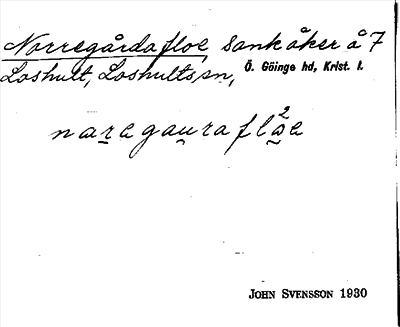 Norregårdafloe sank åker å 7
Loshult, Loshults sn, Ö. Göinge hd, Krist. l.
naregaurafloe
2
JOHN SVENSSON 1930